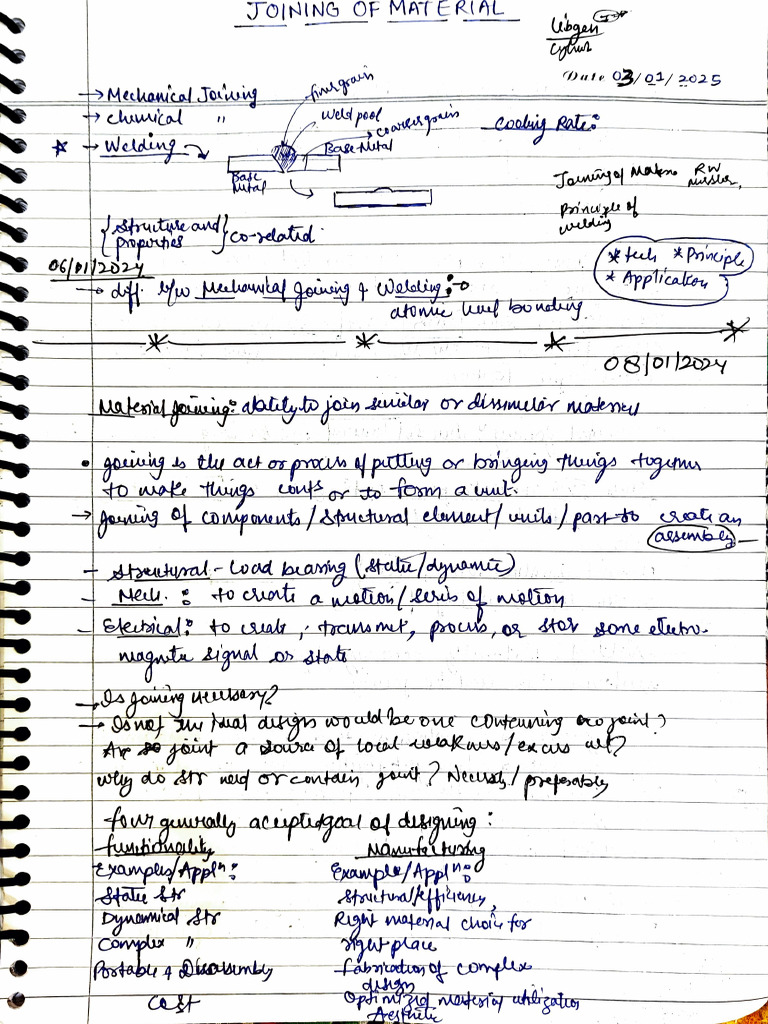 JOINING OF MATERIAL
Libgen
Date 03/01/2025
→ Mechanical Joining
→ chemical "
→ Welding
finer grain
weld pool
coarser grain
Base Metal
Base Metal
Cooling Rate:
Joining of Mater
RW
Principle of welding
{structure and properties} co-related.
* tech * Principle
* Application
06/01/2024
→ diff. b/w Mechanical Joining & Welding:→
atomic level bonding
08/01/2024
Material joining: ability to join similar or dissimilar material
• joining is the act or process of putting or bringing things together
to make things conts or to form a unit.
→ joining of components/structural element/units/part to create an
assembly —
- Structural - Load bearing (static/dynamic)
- Mech. : to create a motion/series of motion
- Electrical: to create, transmit, process, or stor some electro-
magnetic signal or state
→ Is joining necessary?
→ Is not the ideal designs would be one containing no joint?
Are joint a source of local weakness/excess wt?
why do str need or contain joint? Necessity/preferably
four generally accepted goal of designing:
functionality
Manufacturing
Examples/Applⁿ:
Example/Applⁿ:
Static Str
Structural efficiency,
Dynamical Str
Right material choice for
Complex "
right place
Portable & Disassembly
Fabrication of complex
design
Cost
Optimized material utilization
Aesthetic